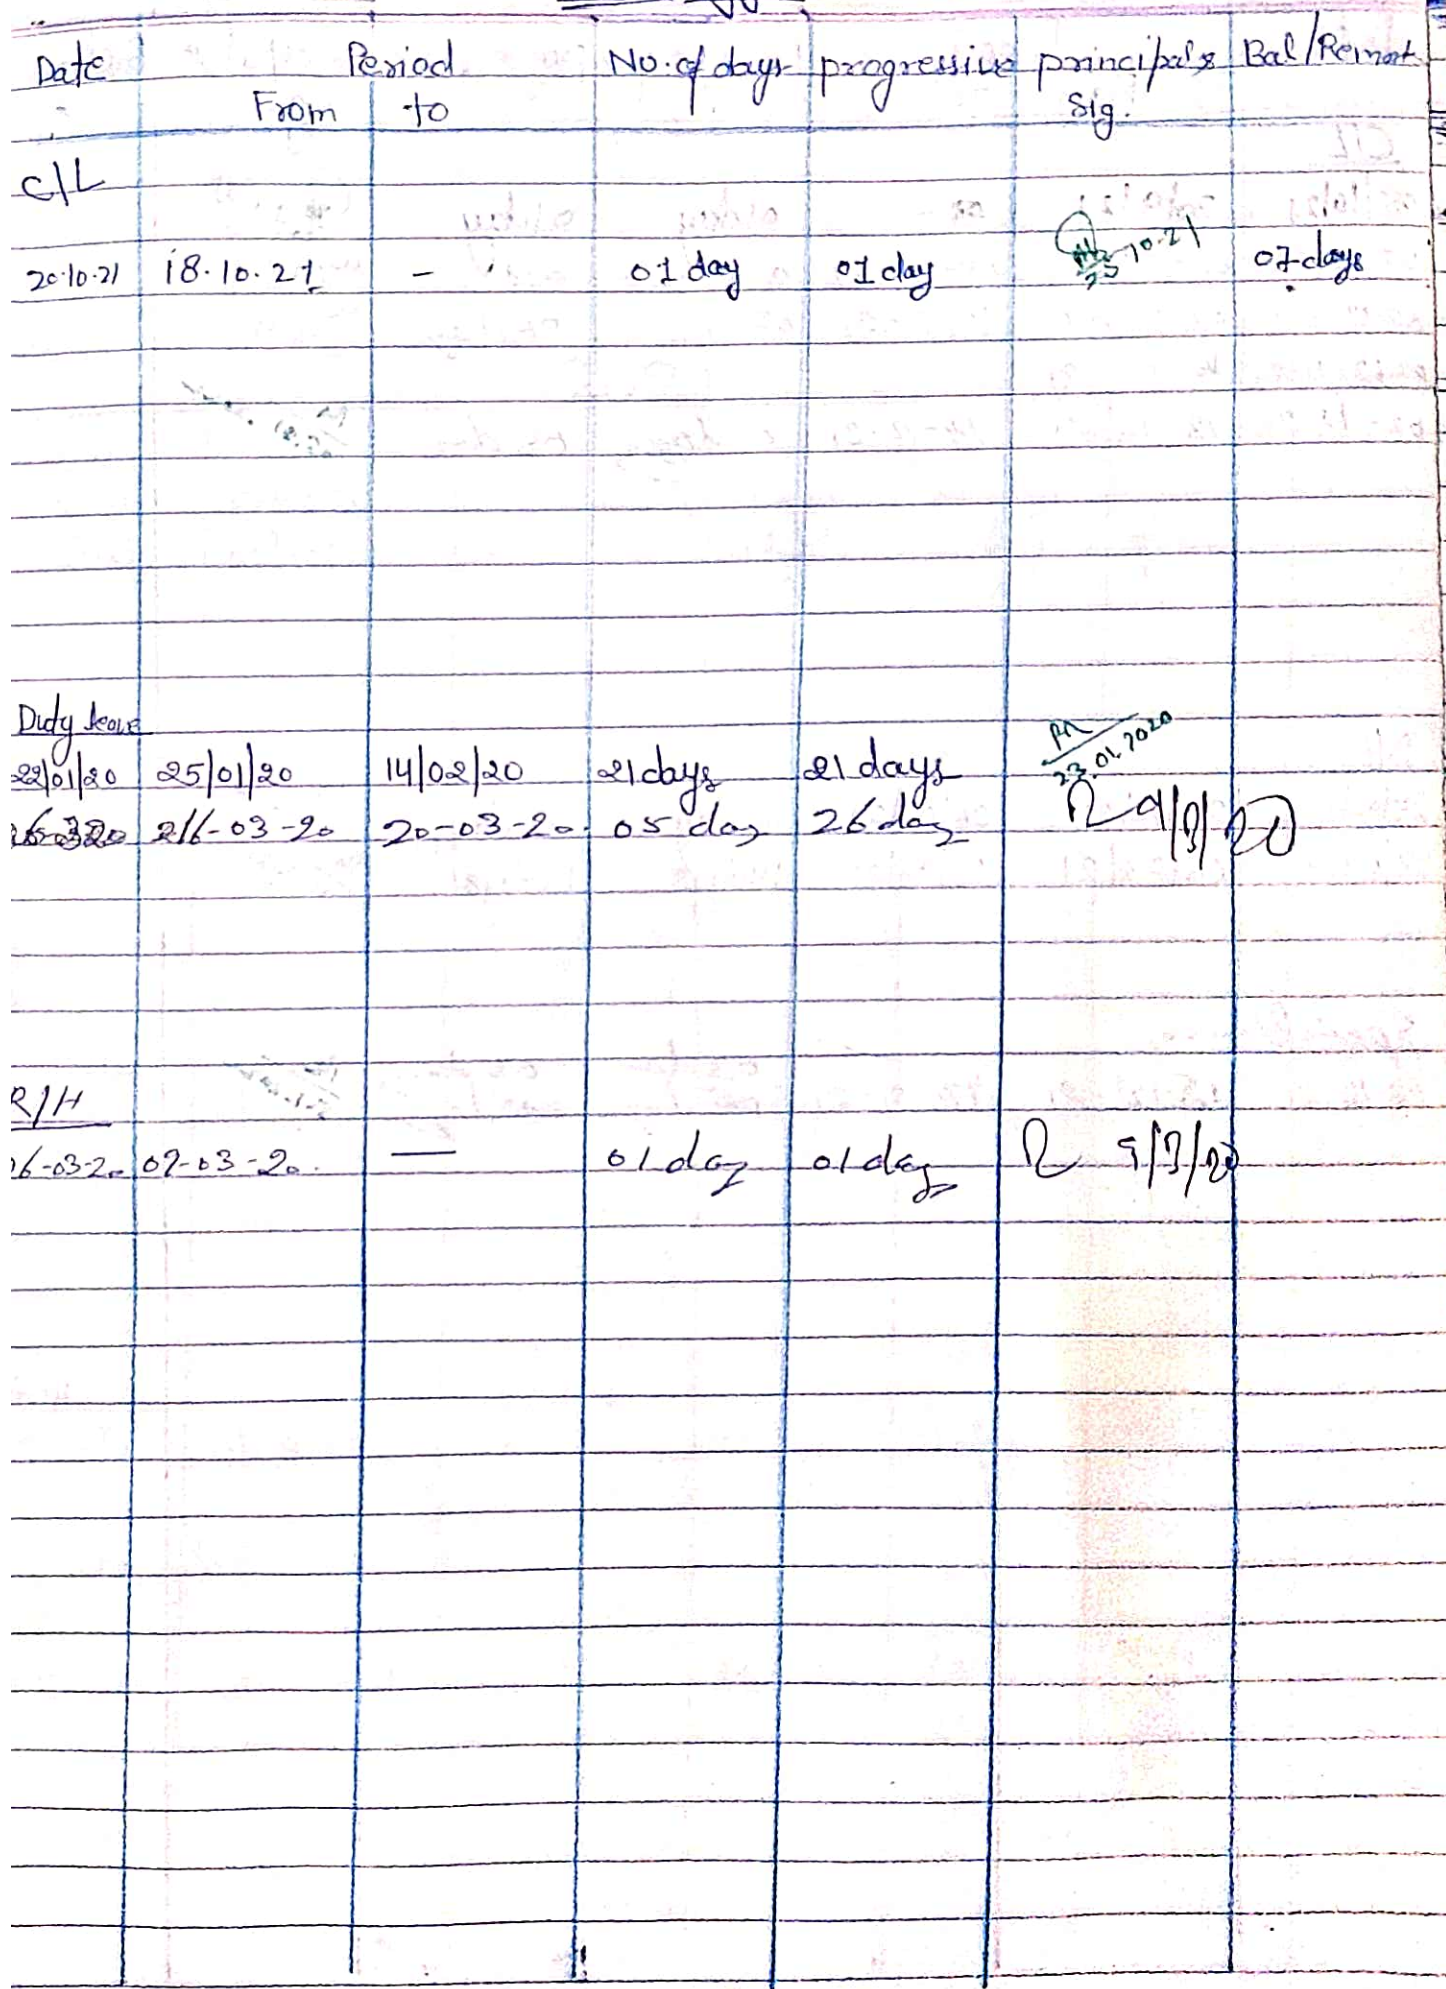 Date Period No. of days progressive principal's Bal/Remark
From to Sig.
C/L
20.10.21 18.10.21 - 01 day 01 day 10.21 07 days
Duty leave
22/01/20 25/01/20 14/02/20 21 days 21 days 23.01.2020
16-03-20 20-03-20 05 day 26 day 9/3/20
R/H
06-03-20 07-03-20 — 01 day 01 day 9/3/20